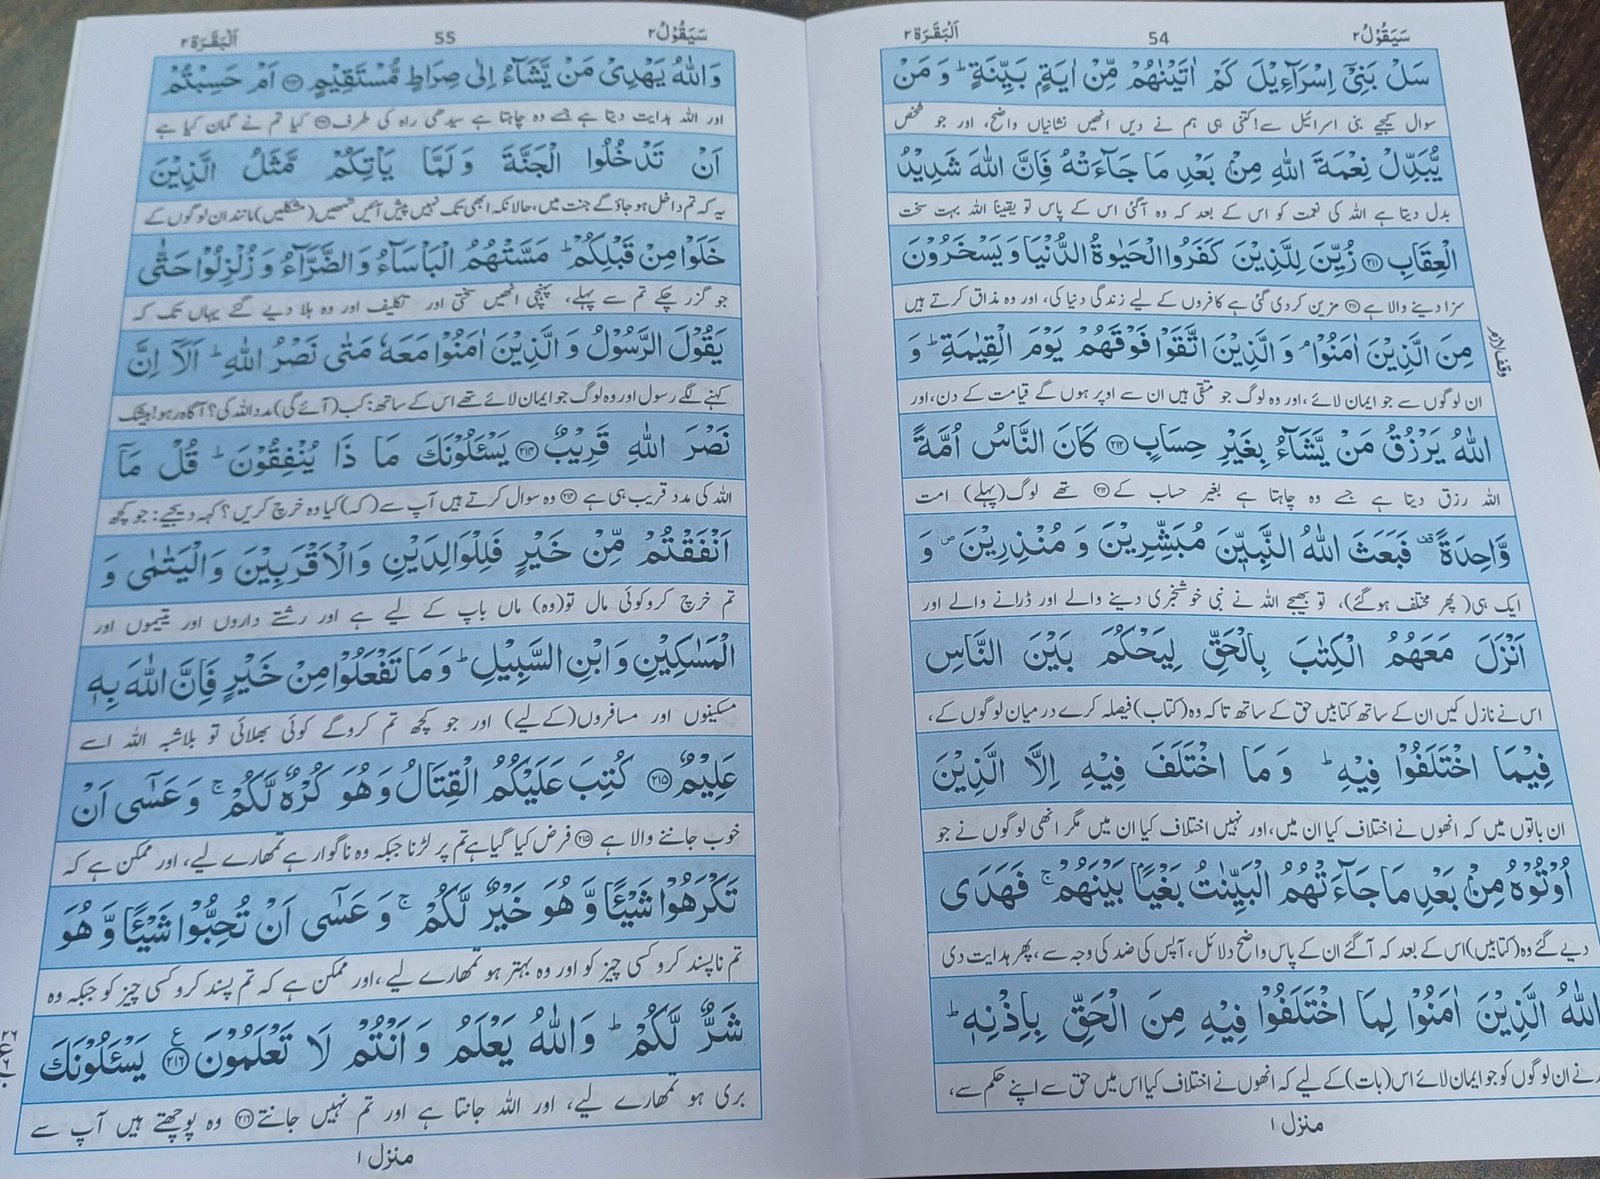 سَيَقُوْلُ ٢ 54 اَلْبَقَرَة ٢
سَلْ بَنِيْٓ اِسْرَآءِيْلَ كَمْ اٰتَيْنٰهُمْ مِّنْ اٰيَةٍۭ بَيِّنَةٍ ؕ وَ مَنْ
سوال کیجیے بنی اسرائیل سے! کتنی ہی ہم نے دیں انھیں نشانیاں واضح، اور جو شخص
يُّبَدِّلْ نِعْمَةَ اللّٰهِ مِنْۢ بَعْدِ مَا جَآءَتْهُ فَاِنَّ اللّٰهَ شَدِيْدُ
بدل دیتا ہے اللہ کی نعمت کو اس کے بعد کہ وہ آگئی اس کے پاس تو یقیناً اللہ بہت سخت
الْعِقَابِ ﴿۲۱۱﴾ زُيِّنَ لِلَّذِيْنَ كَفَرُوا الْحَيٰوةُ الدُّنْيَا وَ يَسْخَرُوْنَ
سزا دینے والا ہے ﴿۲۱۱﴾ مزین کر دی گئی ہے کافروں کے لیے زندگی دنیا کی، اور وہ مذاق کرتے ہیں
مِنَ الَّذِيْنَ اٰمَنُوْا ۘ وَ الَّذِيْنَ اتَّقَوْا فَوْقَهُمْ يَوْمَ الْقِيٰمَةِ ؕ وَ
وقف لازم
ان لوگوں سے جو ایمان لائے، اور وہ لوگ جو متقی ہیں ان سے اوپر ہوں گے قیامت کے دن، اور
اللّٰهُ يَرْزُقُ مَنْ يَّشَآءُ بِغَيْرِ حِسَابٍ ﴿۲۱۲﴾ كَانَ النَّاسُ اُمَّةً
اللہ رزق دیتا ہے جسے وہ چاہتا ہے بغیر حساب کے ﴿۲۱۲﴾ تھے لوگ (پہلے) امت
وَّاحِدَةً ۫ فَبَعَثَ اللّٰهُ النَّبِيّٖنَ مُبَشِّرِيْنَ وَ مُنْذِرِيْنَ ۪ وَ
ایک ہی (پھر مختلف ہوگئے)، تو بھیجے اللہ نے نبی خوشخبری دینے والے اور ڈرانے والے اور
اَنْزَلَ مَعَهُمُ الْكِتٰبَ بِالْحَقِّ لِيَحْكُمَ بَيْنَ النَّاسِ
اس نے نازل کیں ان کے ساتھ کتابیں حق کے ساتھ تاکہ وہ (کتاب) فیصلہ کرے درمیان لوگوں کے،
فِيْمَا اخْتَلَفُوْا فِيْهِ ؕ وَ مَا اخْتَلَفَ فِيْهِ اِلَّا الَّذِيْنَ
ان باتوں میں کہ انھوں نے اختلاف کیا ان میں، اور نہیں اختلاف کیا ان میں مگر انھی لوگوں نے جو
اُوْتُوْهُ مِنْۢ بَعْدِ مَا جَآءَتْهُمُ الْبَيِّنٰتُ بَغْيًۢا بَيْنَهُمْ ۚ فَهَدَى
دیے گئے وہ (کتابیں) اس کے بعد کہ آگئے ان کے پاس واضح دلائل، آپس کی ضد کی وجہ سے، پھر ہدایت دی
اللّٰهُ الَّذِيْنَ اٰمَنُوْا لِمَا اخْتَلَفُوْا فِيْهِ مِنَ الْحَقِّ بِاِذْنِهٖ ؕ
نے ان لوگوں کو جو ایمان لائے اس (بات) کے لیے کہ انھوں نے اختلاف کیا اس میں حق سے اپنے حکم سے،
منزل ١
سَيَقُوْلُ ٢ 55 اَلْبَقَرَة ٢
وَاللّٰهُ يَهْدِيْ مَنْ يَّشَآءُ اِلٰى صِرَاطٍ مُّسْتَقِيْمٍ ﴿۲۱۳﴾ اَمْ حَسِبْتُمْ
اور اللہ ہدایت دیتا ہے جسے وہ چاہتا ہے سیدھی راہ کی طرف ﴿۲۱۳﴾ کیا تم نے گمان کیا ہے
اَنْ تَدْخُلُوا الْجَنَّةَ وَ لَمَّا يَاْتِكُمْ مَّثَلُ الَّذِيْنَ
یہ کہ تم داخل ہو جاؤ گے جنت میں، حالانکہ ابھی تک نہیں پیش آئیں تمھیں (مشکلیں) مانند ان لوگوں کے
خَلَوْا مِنْ قَبْلِكُمْ ؕ مَسَّتْهُمُ الْبَاْسَآءُ وَ الضَّرَّآءُ وَ زُلْزِلُوْا حَتّٰى
جو گزر چکے تم سے پہلے، پہنچی انھیں سختی اور تکلیف اور وہ ہلا دیے گئے یہاں تک کہ
يَقُوْلَ الرَّسُوْلُ وَ الَّذِيْنَ اٰمَنُوْا مَعَهٗ مَتٰى نَصْرُ اللّٰهِ ؕ اَلَآ اِنَّ
کہنے لگے رسول اور وہ لوگ جو ایمان لائے تھے اس کے ساتھ: کب (آئے گی) مدد اللہ کی؟ آگاہ رہو! بیشک
نَصْرَ اللّٰهِ قَرِيْبٌ ﴿۲۱۴﴾ يَسْـَٔلُوْنَكَ مَا ذَا يُنْفِقُوْنَ ؕ قُلْ مَآ
اللہ کی مدد قریب ہی ہے ﴿۲۱۴﴾ وہ سوال کرتے ہیں آپ سے (کہ) کیا وہ خرچ کریں؟ کہہ دیجیے: جو کچھ
اَنْفَقْتُمْ مِّنْ خَيْرٍ فَلِلْوَالِدَيْنِ وَالْاَقْرَبِيْنَ وَالْيَتٰمٰى وَ
تم خرچ کرو کوئی مال تو (وہ) ماں باپ کے لیے ہے اور رشتے داروں اور یتیموں اور
الْمَسٰكِيْنِ وَ ابْنِ السَّبِيْلِ ؕ وَ مَا تَفْعَلُوْا مِنْ خَيْرٍ فَاِنَّ اللّٰهَ بِهٖ
مسکینوں اور مسافروں (کے لیے) اور جو کچھ تم کرو گے کوئی بھلائی تو بلاشبہ اللہ اسے
عَلِيْمٌ ﴿۲۱۵﴾ كُتِبَ عَلَيْكُمُ الْقِتَالُ وَ هُوَ كُرْهٌ لَّكُمْ ۚ وَ عَسٰٓى اَنْ
خوب جاننے والا ہے ﴿۲۱۵﴾ فرض کیا گیا ہے تم پر لڑنا جبکہ وہ ناگوار ہے تمھارے لیے، اور ممکن ہے کہ
تَكْرَهُوْا شَيْـًٔا وَّ هُوَ خَيْرٌ لَّكُمْ ۚ وَ عَسٰٓى اَنْ تُحِبُّوْا شَيْـًٔا وَّ هُوَ
تم ناپسند کرو کسی چیز کو اور وہ بہتر ہو تمھارے لیے، اور ممکن ہے کہ تم پسند کرو کسی چیز کو جبکہ وہ
شَرٌّ لَّكُمْ ؕ وَاللّٰهُ يَعْلَمُ وَ اَنْتُمْ لَا تَعْلَمُوْنَ ﴿۲۱۶﴾ ع يَسْـَٔلُوْنَكَ
بری ہو تمھارے لیے، اور اللہ جانتا ہے اور تم نہیں جانتے ﴿۲۱۶﴾ وہ پوچھتے ہیں آپ سے
منزل ١